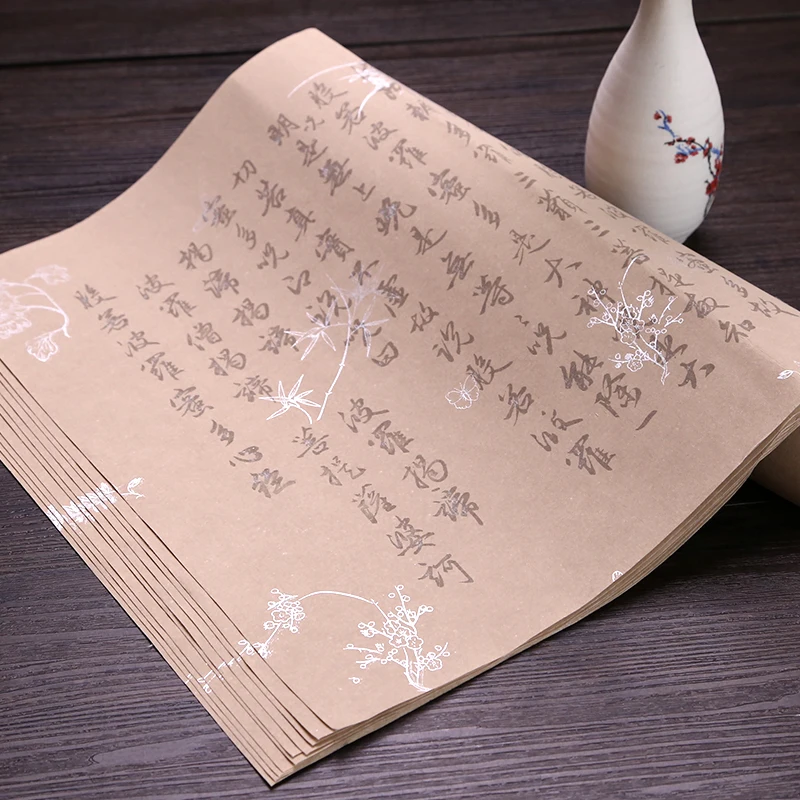 耨多羅三藐三菩提故知
般若波羅蜜多是大神咒是大
明咒是無上咒是無等等咒能除一
切苦真實不虛故說般若波羅
蜜多咒即說咒曰
揭諦揭諦波羅揭諦
波羅僧揭諦菩提薩婆訶
般若波羅蜜多心經